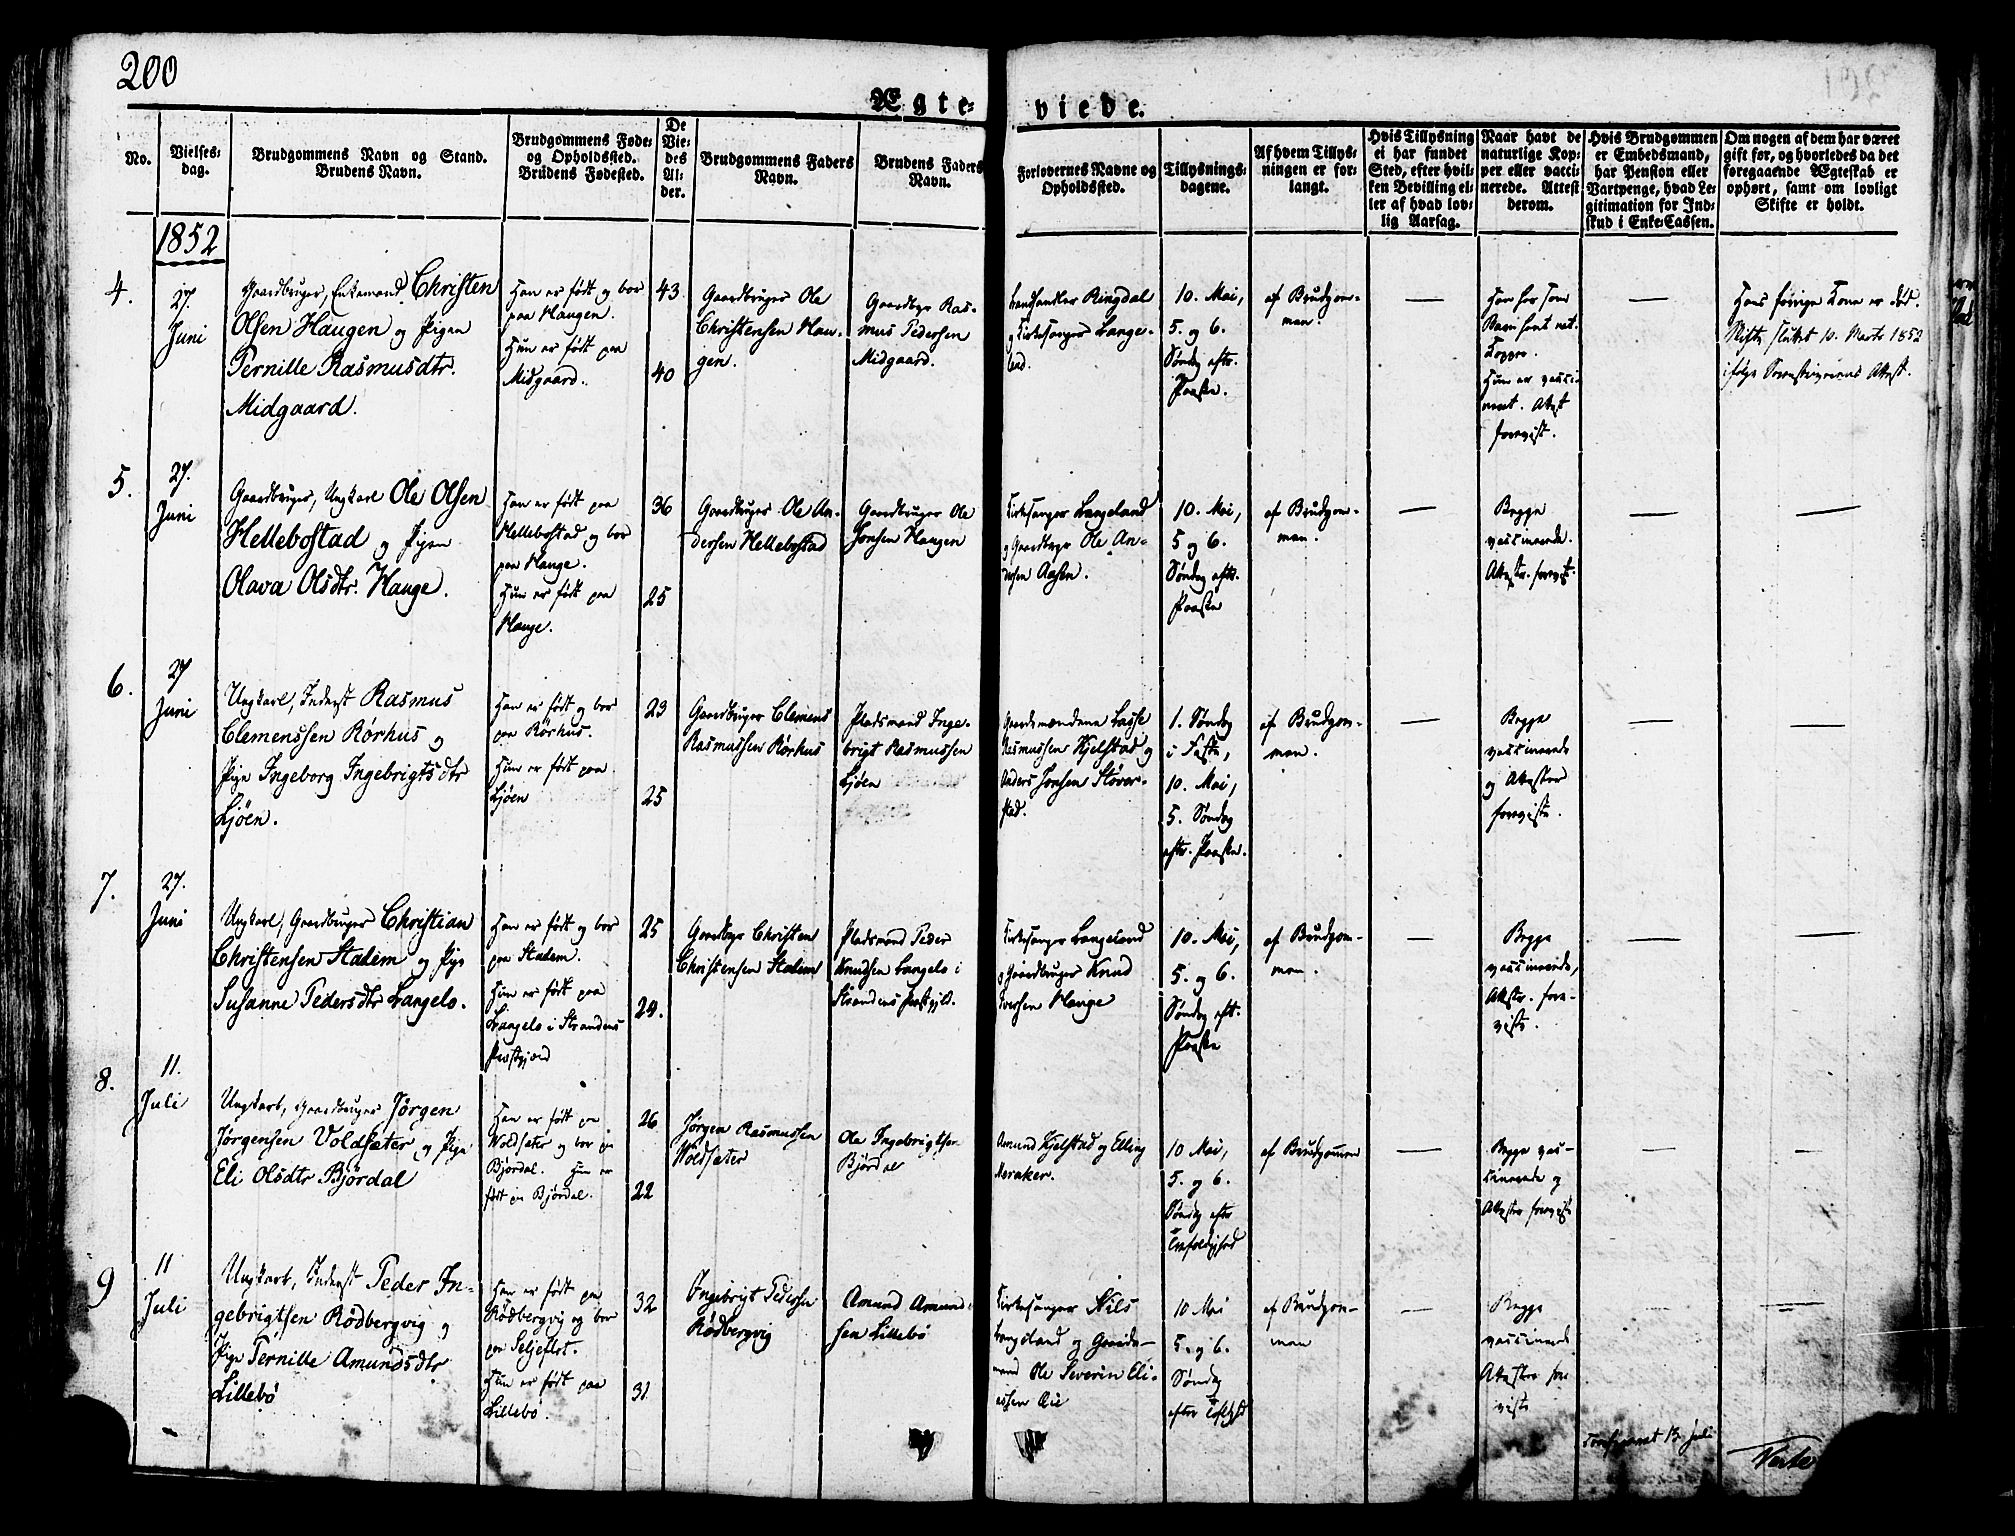 200
Ægte-
viede.
No.
Vielses-
dag.
Brudgommens Navn og Stand.
Brudens Navn.
Brudgommens Føde-
og Opholdssted.
Brudens Fødested.
De
Vie-
des
Al-
der.
Brudgommens Faders
Navn.
Brudens Faders
Navn.
Forlovernes Navne og
Opholdssted.
Tillysnings-
dagene.
Af hvem Tillys-
ningen er for-
langt.
Hvis Tillysning
ei har fundet
Sted, efter hvil-
ken Bevilling el-
ler af hvad lov-
lig Aarsag.
Naar havt de
naturlige Kop-
per eller vacci-
nerede. Attest
derom.
Hvis Brudgommen
er Embedsmand,
har Pension eller
Vartpenge, hvad Le-
gitimation for Ind-
skud i Enke-Cassen.
Om nogen af dem har været
gift før, og hvorledes da det
foregaaende Ægteskab er
ophørt, samt om lovligt
Skifte er holdt.
1852
4.
27.
Juni
Gaardbruger, Enkemand Christen
Olsen Haugen og Pigen
Pernille Rasmusdtr.
Midgaard.
Han er født og bor
paa Haugen.
Hun er født paa
Midgaard.
43
40
Gaardbruger Ole
Christensen Hau-
gen.
Gaardbgr Ras-
mus Pedersen
Midgaard.
Landhandler Ringdal
og Kirkesanger Lange-
land.
10. Mai,
5. og 6.
Søndag eftr.
Paaske.
af Brudgom-
men.
—
Han har som
Barn havt nat.
Kopper.
Hun er vacci-
neret. Attest
forevist.
—
Hans forrige Kone er død.
Skifte sluttet 10. Marts 1852
ifølge Sorenskriverens Attest.
5.
27.
Juni
Gaardbruger, Ungkarl Ole Olsen
Hellebostad og Pigen
Olava Olsdtr. Hauge.
Han er født paa
Hellebostad og bor
paa Hauge.
Hun er født paa
Hauge.
36
25
Gaardbruger Ole An-
dersen Hellebostad
Gaardbruger Ole
Jonsen Haugen
Kirkesanger Langeland
og Gaardbgr Ole An-
dersen Aasen.
10. Mai,
5 og 6.
Søndag eftr.
Paaske
af Brudgom-
men.
—
Begge
vaccinerede.
Attestr. forevist.
—
—
6.
27
Juni
Ungkarl, Inderst Rasmus
Clemenssen Rørhus og
Pige Ingeborg Ingebrigtsdtr
Ljøen.
Han er født og bor
paa Rørhus.
Hun er født paa
Ljøen
23
25
Gaardbruger Clemens
Rasmussen Rørhus
Pladsmand Inge-
brigt Rasmussen
Ljøen
Gaardmændene Lasse
Rasmussen Kjelstad og
Anders Jonsen Stover-
stad.
1. Søndag
i Faste,
10. Mai,
5. Søndag
eftr. Paaske.
af Brudgom-
men.
—
Begge
vaccinerede
og Attester
foreviste.
—
—
7.
27.
Juni
Ungkarl, Gaardbruger Christian
Christensen Stadem og Pige
Susanne Pedersdtr Langelo.
Han er født og bor
paa Stadem.
Hun er født paa
Langelo i Strandens
Præstegjæld
25
24.
Gaardbgr Christen
Christensen Stadem
Pladsmand Peder
Knudsen Langelo i
Strandens Præstgjld.
Kirkesanger Langeland
og Gaardbruger Knud
Iversen Hauge
10. Mai,
5. og 6.
Søndag eft.
Paaske
af Brudgom-
men.
—
Begge
vaccinerede,
Attestr. fore-
viste.
—
—
8.
11.
Juli
Ungkarl, Gaardbruger Jørgen
Jørgensen Voldsæter og Pige
Eli Olsdtr Bjørdal
Han er født paa
Woldsæter og bor paa
Bjørdal. Hun er
født paa Bjørdal.
26
22
Jørgen Rasmussen
Woldsæter
Ole Ingebrigtsen
Bjørdal
Amund Kjelstad og Elling
Meraker.
10 Mai,
5. og 6.
Søndag eftr
Trefoldighed
af Brudgommen
—
Begge vac-
cinerede og
Attester forevist
—
—
9
11
Juli
Ungkarl, Inderst Peder In-
gebrigtsen Rødbergvig og
Pige Pernille Amundsdtr
Lillebø
Han er født paa
Rødbergvig og bor
paa Seljeflot.
Hun er født paa
Lillebø.
32
31
Ingebrigt Pedersen
Rødbergvig
Amund Amund-
sen Lillebø
Kirkesanger Nils
Langeland og Gaard-
mand Ole Severin Eli-
assen
10 Mai
5. og 6.
Søndag
efter
af Brudgom-
men
—
Begge
vaccinerede
Attester fore
viste
—
—
13 Juli
Verte